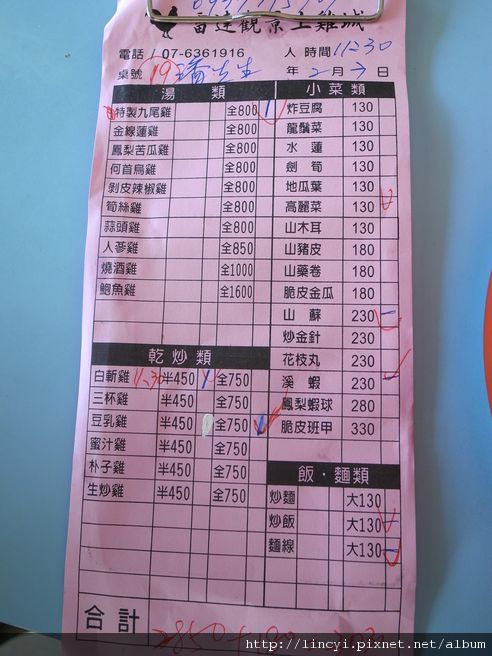 富達觀景土雞城
電話 / 07-6361916 人 時間 11:30
桌號 19 潘先生 年 2 月 7 日
湯類
特製九尾雞 全800 1
金線蓮雞 全800
鳳梨苦瓜雞 全800
何首烏雞 全800
剝皮辣椒雞 全800
筍絲雞 全800
蒜頭雞 全800
人蔘雞 全850
燒酒雞 全1000
鮑魚雞 全1600
乾炒類
白斬雞 半450 1 全750
三杯雞 半450 全750
豆乳雞 半450 全750
蜜汁雞 半450 全750
朴子雞 半450 全750
生炒雞 半450 全750
小菜類
炸豆腐 130
龍鬚菜 130
水蓮 130
劍筍 130
地瓜葉 130
高麗菜 130
山木耳 130
山豬皮 180
山藥卷 180
脆皮金瓜 180
山蘇 230
炒金針 230
花枝丸 230
溪蝦 230
鳳梨蝦球 280
脆皮班甲 330
飯·麵類
炒麵 大130
炒飯 大130
麵線 大130
合計
http://lincyi.pixnet.net/album